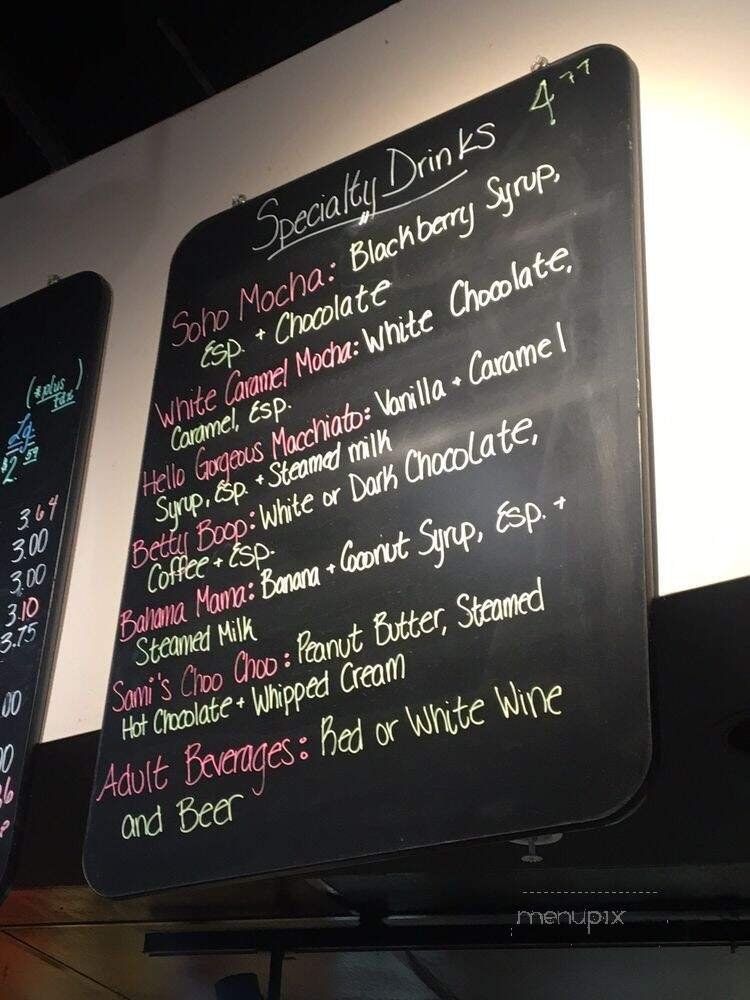 4 77
Specialty Drinks
Soho Mocha: Blackberry Syrup,
Esp. + Chocolate
White Caramel Mocha: White Chocolate,
Caramel, Esp.
Hello Gorgeous Macchiato: Vanilla + Caramel
Syrup, Esp. + Steamed milk
Betty Boop: White or Dark Chocolate,
Coffee + Esp.
Bahama Mama: Banana + Coconut Syrup, Esp. +
Steamed Milk
Sami's Choo Choo: Peanut Butter, Steamed
Hot Chocolate + Whipped Cream
Adult Beverages: Red or White Wine
and Beer
(*plus
tax)
Lg
$2.59
3.64
3.00
3.00
3.10
3.75
menupix